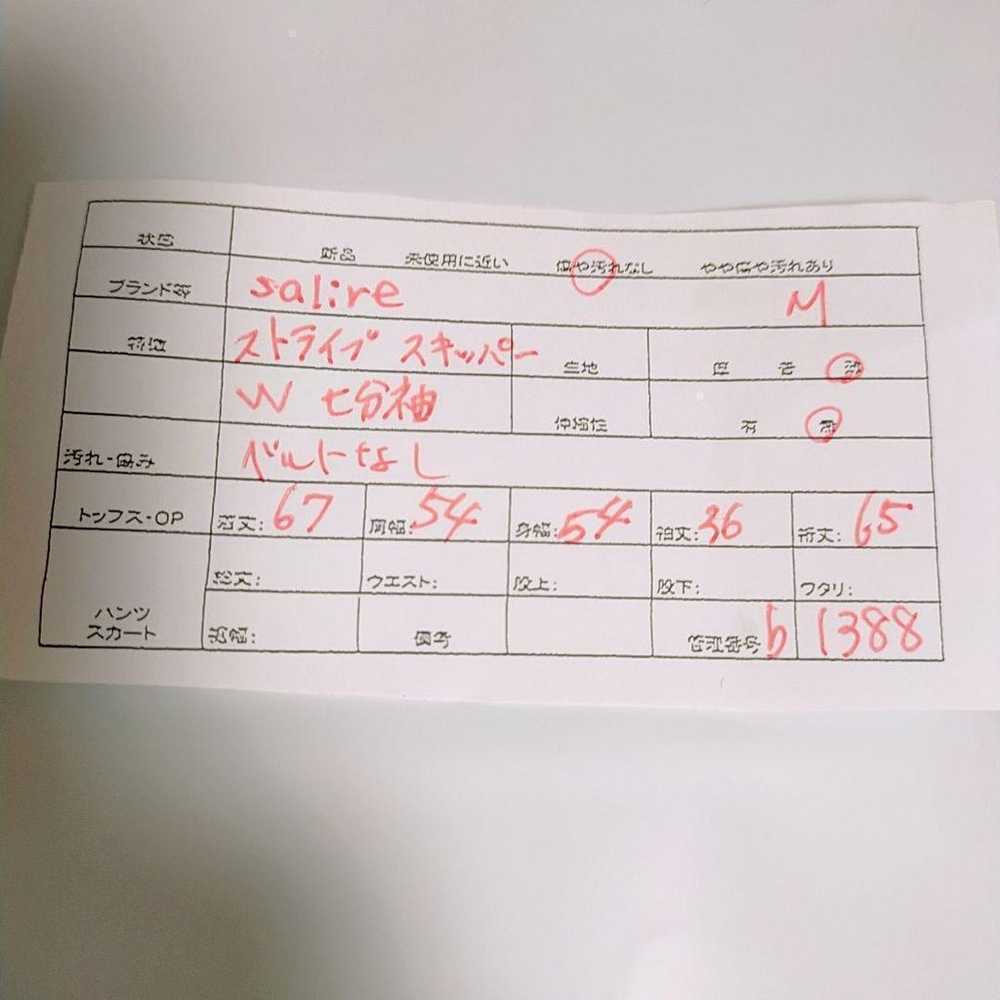 状態 新品 未使用に近い 傷や汚れなし やや傷や汚れあり
ブランド等 salire M
特徴 ストライプ スキッパー 生地 厚 普 薄
W 七分袖 伸縮性 有 無
汚れ・傷み ベルトなし
トップス・OP 着丈: 67 肩幅: 54 身幅: 54 袖丈: 36 裄丈: 65
総丈: ウエスト: 股上: 股下: ワタリ:
パンツ
スカート 裾幅: 備考 管理番号 b 1388